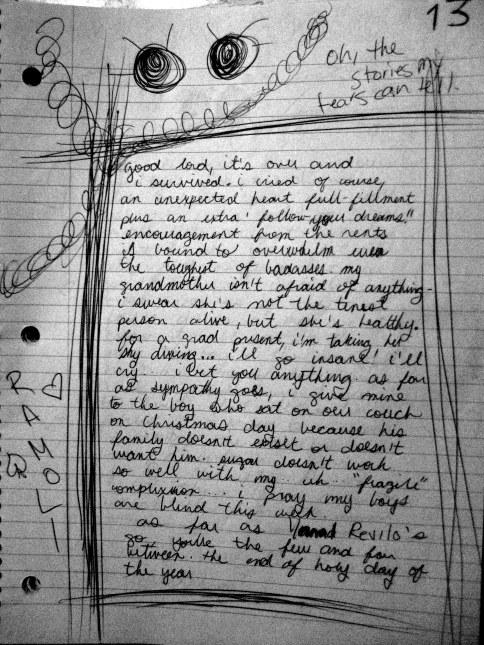 13
oh, the
stories my
tears can tell.
good lord, it's over and
i survived. i cried of course,
an unexpected heart full-fillment
plus an extra "follow your dreams"
encouragement from the rents
is bound to overwhelm even
the toughest of badasses my
grandmother isn't afraid of anything-
i swear she's not the tinest
person alive, but she's healthy.
for a grad present, i'm taking her
sky diving... i'll go insane! i'll
cry... i bet you anything. as far
as sympathy goes, i give mine
to the boy who sat on our couch
on christmas day because his
family doesn't exist or doesn't
want him. sugar doesn't work
so well with my uh "fragile"
complixion... i pray my boys
are blind this week
as far as Revilo's
go you're the few and far
between. the end of holy day of
the year
RAMOLI